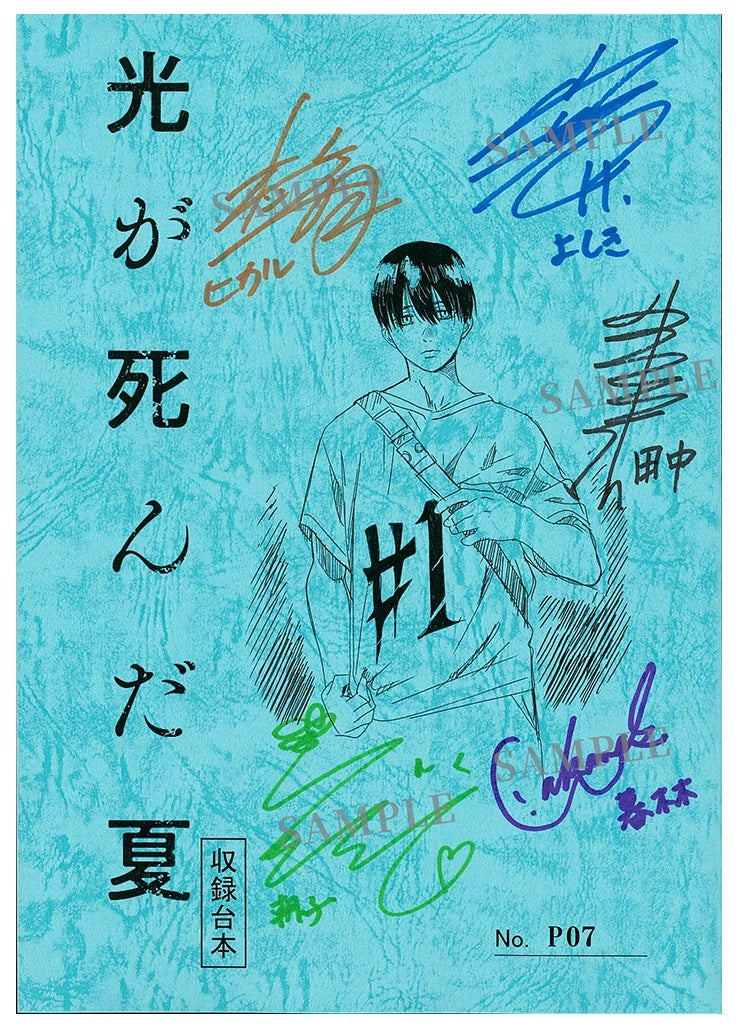 光が死んだ夏
収録台本
SAMPLE
ヒカル
SAMPLE
よしき
SAMPLE
田中
#1
SAMPLE
暮林
SAMPLE
朝子
No. P07